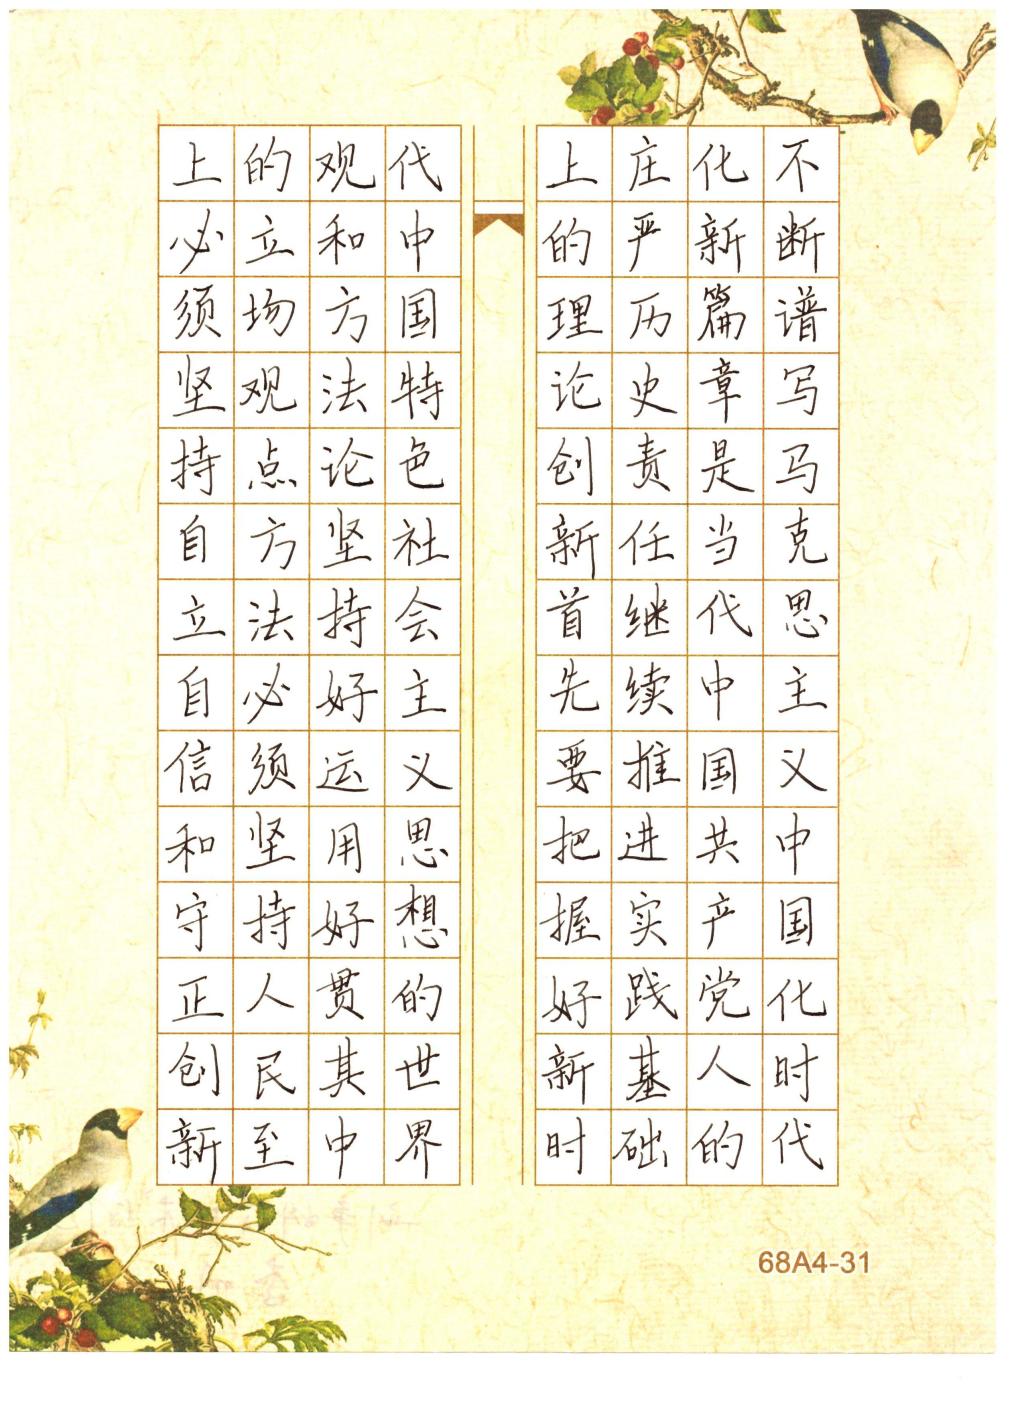 不断谱写马克思主义中国化时代
化新篇章是当代中国共产党人的
庄严历史责任继续推进实践基础
上的理论创新首先要把握好新时
代中国特色社会主义思想的世界
观和方法论坚持好运用好贯其中
的立场观点方法必须坚持人民至
上必须坚持自立自信和守正创新
68A4-31